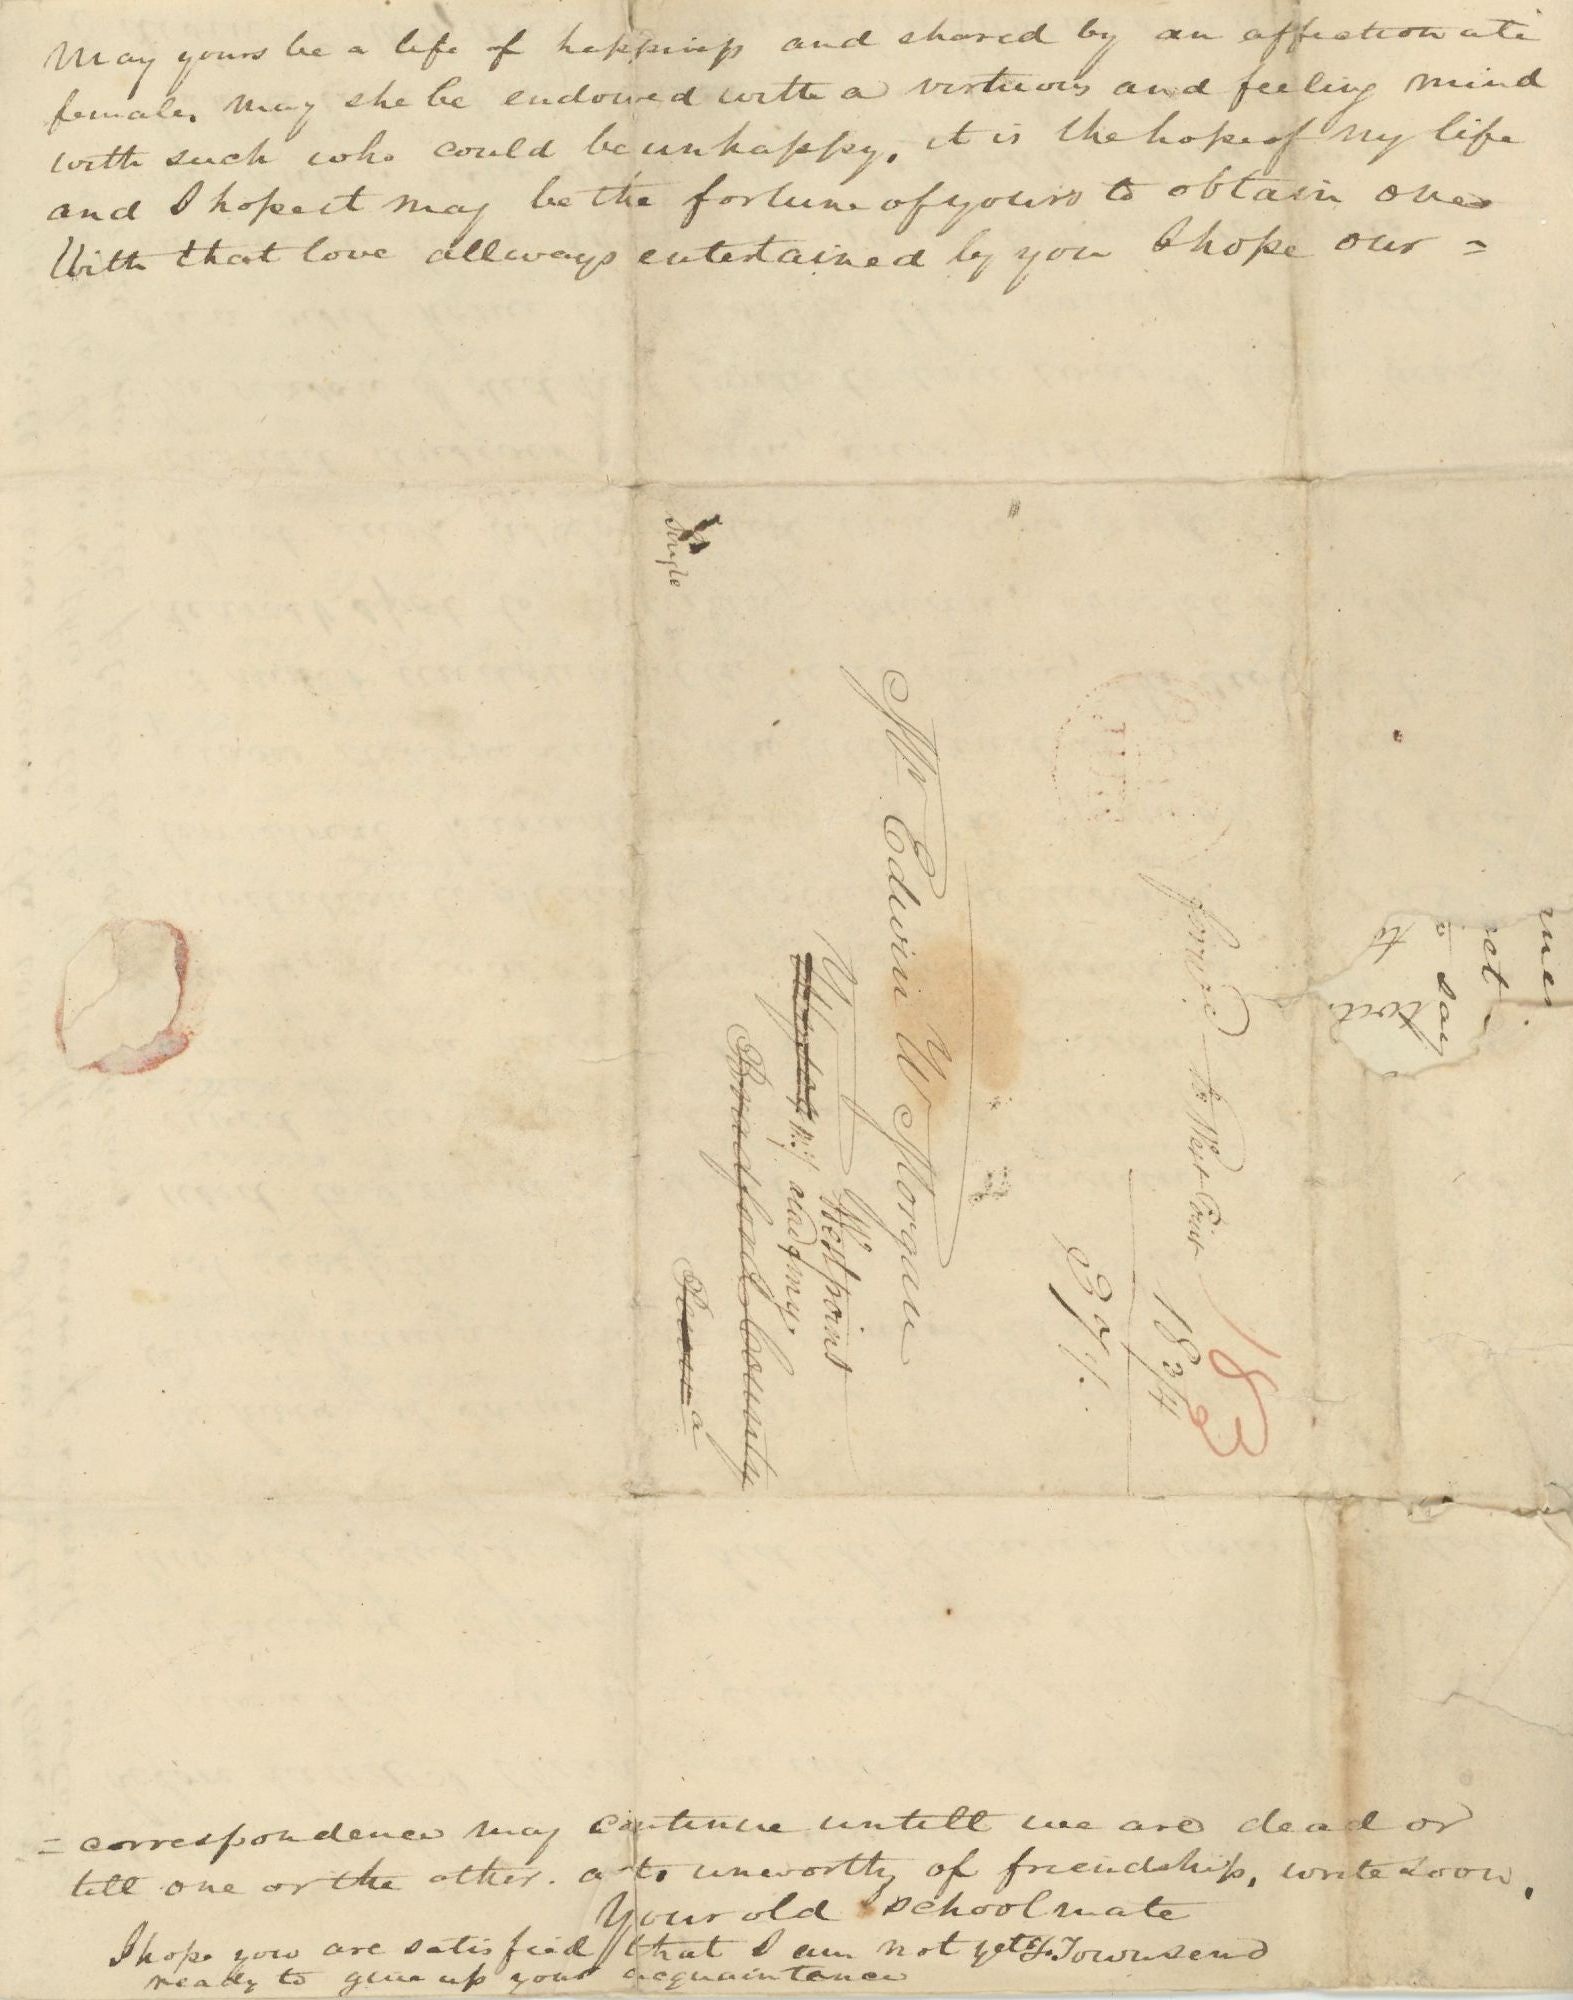 May yours be a life of happiness and shared by an affectionate
female. May she be endowed with a virtuous and feeling mind
with such who could be unhappy. it is the hope of my life
and I hope it may be the fortune of yours to obtain one
With that love allways entertained by you I hope our =
Single
Mr Edwin W Morgan
Westpoint
academy.
Bradford County
forwd to West Point
1834
18 3/4
37 1/2
say
= correspondence may continue untill we are dead or
till one or the other. acts unworthy of friendship, write soon.
Your old schoolmate
Townsend
I hope you are satisfied that I am not yet
ready to give up your acquaintance